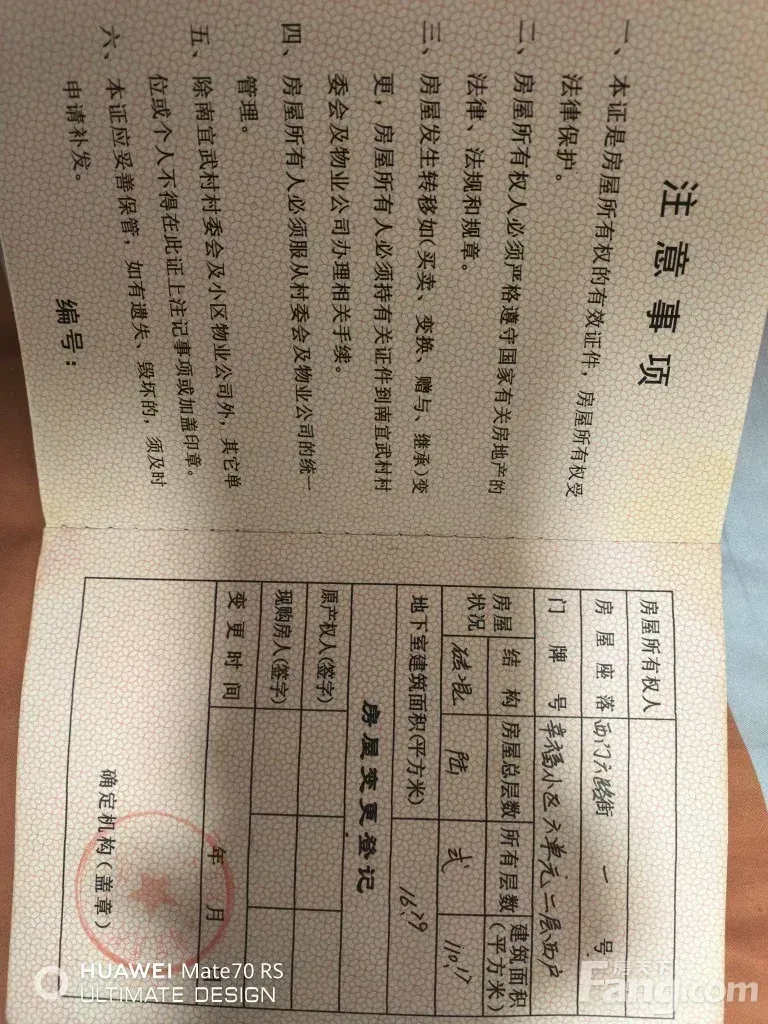 注意事项
一、本证是房屋所有权的有效证件，房屋所有权受
法律保护。
二、房屋所有权人必须严格遵守国家有关房地产的
法律、法规和规章。
三、房屋发生转移如(买卖、变换、赠与、继承)变
更，房屋所有人必须持有关证件到南宜武村村
委会及物业公司办理相关手续。
四、房屋所有人必须服从村委会及物业公司的统一
管理。
五、除南宜武村村委会及小区物业公司外，其它单
位或个人不得在此证上注记事项或加盖印章。
六、本证应妥善保管，如有遗失、毁坏的，须及时
申请补发。
编号：
房屋所有权人
房屋座落 西门六路街 一号
门牌号 幸福小区六单元二层西户
房屋状况 结构 房屋总层数 所有层数 建筑面积(平方米)
砖混 陆 弍 110.17
地下室建筑面积(平方米) 16.79
房屋变更登记
原产权人(签字)
现购房人(签字)
变更时间 年 月
确定机构(盖章)
HUAWEI Mate70 RS
ULTIMATE DESIGN
房天下
Fang.com